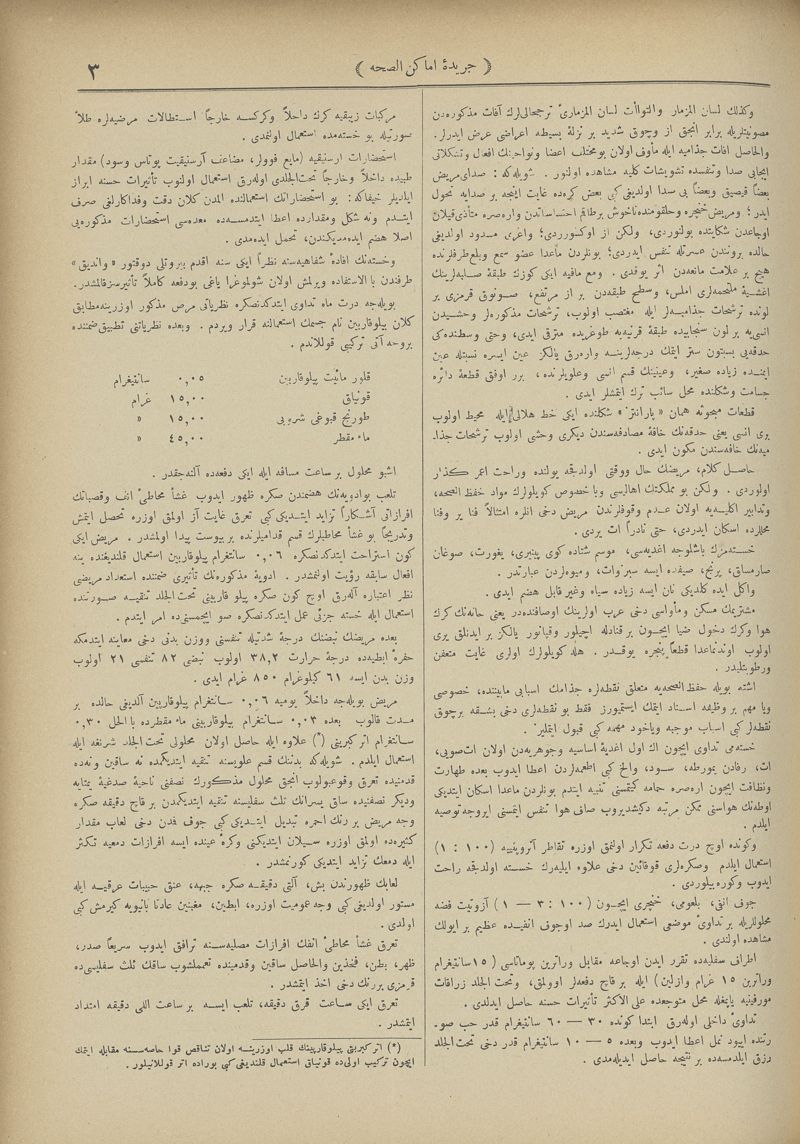 ﴿ جريدۀ اماكن الصحه ﴾
٣
وكذلك لسان المزمار والتواآت لسان المزمارئ ترجمعالىلرك آفات مذكوره‌دن
مصونيتلريله برابر انجق از وچوق شديد بر نزلۀ بسيطه اعراضى عرض ايدرلر.
والحاصل آفات جذاميه ايله مأوف اولان بومختلف اعضا ونواحينك افعال وتشكلاتى
ايجابى صدا وتنفسده تشويشات كليه مشاهده اولنور . شويله‌كه : صداى مريض
بعضاً قيصيق وبعضاً بى صدا اولديغى كبى بعض كره‌ده غايت اينجه بر صدايه تحول
ايدر ؛ ومريض حنجره وحلقومنده ناخوش برطاقم احتساساتدن واره‌صره متأذى قيلان
اوجاعدن شكايتده بولنوردى، ولكن از اوكسوردى؛ واغزى مسدود اولديغى
حالده بروننদن عسرتله تنفس ايدردى؛ بونلردن ماعدا عضو سمع وبلع طرفلرنده
هيچ بر علامت مانعه‌دن اثر يوقدى . مع مافيه ايكى كوزك طبقۀ صلبه‌لرينك
اغشيۀ ملتحمه‌لرى املس، وسطح طبقه‌دن بر از مرتفع، صولغون قرمزى بر
لونده ترشحات جذاميه‌لر ايله مغتصب اولوب، ترشحات مذكوره‌لر وحشيدن
انسى‌يه بر لون سنجابيده طبقۀ قرنيه‌يه طوغريده مترقى ايدى، وحتى وسطنده‌كى
حدقه‌يى بسبتون ستر ايتمك درجه‌لرينه وارەرق يالكز عين ايسره نسبتله عين
ايمنده زياده صغير، وعينينك قسم انسى وعلويلرنده، برر اوفق قطعۀ دائره
جسامت وشكلنده محل سائب ترك ايتمشلر ايدى .
قطعات مبحوثه همان « پارانتز » شكلنده ايكى خط هلالى ايله محيط اولوب
برى انسى يعنى حدقه‌نك حافۀ مصادفه‌سندن ديكرى وحشى اولوب ترشحات جذا-
ميه‌نك حافه‌سندن مكون ايدى .
حاصل كلام، مريضك حال ووقتى اولدقجه يولنده وراحت امرار كذار
اولوردى . ولكن بو مملكتك اهاليسى وباخصوص كويلولرك مواد حفظ الصحه،
وتدابير اكليه‌يه اولان عدم وقوفلرندن مريض دخى انلره امتثالاً فنا ير وفنا
محللرده اسكان ايدردى، حتى نادراً ات يردى .
خسته‌مزك باشلوجه اغذيه‌سى، موسم شتاده كوى پنيرى، يغورت، صوغان
صارمساق، پرنج، صيفده ايسه سبزوات، وميوه‌لردن عبارتدر .
واكل ايده كلديكى نان ايسه زياده سياه وغير قابل هضم ايدى .
مشتريمك مسكن ومأواسى دخى عرب اولرينك اوصافندەدر يعنى خانه‌نك كرك
هوا وكرك دخول ضيا ايچون بر قنادله آچيلور وقپانور يالكز بر ايدنلق يرى
اولوب اوندن‌ماعدا قطعاً پنجره يوقدر . هله كويلولرك اولرى غايت متعفن
ورطوبتليدر .
اشته بويله حفظ الصحه‌يه متعلق نقطه‌لره جذامك اسبابى مابيننده، خصوصى
ويا مهم بر وظيفه اسناد ايتمك ايستميورز فقط بو نقطه‌لرى دخى بشقه برچوق
نقطه‌لر كبى اسباب موجبه وياخود مهمه كبى قبول ايتمليز .
خسته‌مى تداوى ايچون اك اول اغذيۀ اساسيه وجوهريه‌دن اولان ات‌صويى،
ات، رفادن يمورطه، سود، والخ كبى اطعمه‌لردن اعطا ايدوب بعده طهارت
ونظافت ايچون اره‌صره حمامه كتمسنى تنبيه ايتدم بونلردن ماعدا اسكان ايتديكى
اوطه‌نك هواسنى ممكن مرتبه دكيشديروب صاف هوا تنفس ايتمسنى ايروجه توصيه
ايلدم .
وكونده اوچ درت دفعه تكرار اولنمق اوزره تقاطر آتروپينيه ( ١٠٠ : ١ )
استعمال ايلدم وصكره‌لرى قوقائين دخى علاوه ايليه‌رك خسته اولدقجه راحت
ايدوب وكوره بيلوردى .
جوف انفى، بلعومى، حنجرى ايچون ( ١٠٠ : ٣ — ١ ) آزوتيت فضه
محلوللريله بر تداوئ موضعى استعمال ايدرك صد اوجوف انفيده عظيم بر ايولك
مشاهده اولندى .
اطراف سفليه‌ده تقرر ايدن اوجاعه مقابل وراترين پوماتاسى ( ١٥ سانتيغرام
وراترين ١٥ غرام وازلين ) ايله بر قاچ دفعه‌لر اوولمق، وتحت الجلد زراقات
مورفينيه ياپمغله محل متوجعده على الاكثر تأثيرات حسنه حاصل ايدلدى .
تداوئ داخلى اولەرق ابتدا كونده ٣٠ — ٦٠ سانتيغرام قدر حب صو-
رتنده ايپود نمل اعطا ايدوب وبعده ٥ — ١٠ سانتيغرام قدر دخى تحت الجلد
رزق ايلدمسه‌ده بر نتيجه حاصل ايديله‌مدى .
مركبات زيبقيه كرك داخلاً وكركسه خارجاً استطالات مرضيه‌لره طلأ
صورتيله بو خسته‌مده استعمال اولنمدى .
استحضارات ارسنيقيه ( مايع فوولر، مضاعف آرسنيقيت پوتاس وسود ) مقدار
طبيده داخلاً وخارجاً تحت‌الجلدى اوله‌رق استعمال اولنوب تأثيرات حسنه ابراز
ايلديلر خيفاكه : بو استحضاراتك استعمالنده المدن كلان دقت وفداكارلغى صرف
ايتدم ونه شكل ومقدارده اعطا ايتدمسه‌ده معده‌سى استحضارات مذكوره‌يى
اصلا هضم ايده‌مديكندن، تحمل ايده‌مدى .
وخسته‌نك افادۀ شفاهيه‌سنه نظراً ايكى سنه اقدم بيروتلى دوقتور « وانديق »
طرفندن بالاستفاده ويرلمش اولان شولموغرا ياغى بودفعه كاملاً تأثيرسزقالمشدر.
بويله‌جه درت ماه تداوى ايتدكدنصكره نظرياتى مرض مذكور اوزرينه‌مطابق
كلان پيلوقارپين نام جسمك استعمالنه قرار ويردم . وبعده نظرياتنى تطبيق‌ضمننده
بروجه آتى تركيبى قوللاندم .
قلور مائيت پيلوقارپين ٠,٠٥ سانتيغرام
قونياق ١٥,٠٠ غرام
طورنج قبوغى شروبى ١٥,٠٠ »
ماء مقطر ٤٥,٠٠ »
اشبو محلول بر ساعت مسافه ايله ايكى دفعه‌ده آلنه‌جقدر .
تلعب بوادويه‌نك هضمندن صكره ظهور ايدوب غشأ مخاطئ انف وقصباتك
افرازاتى آشكاراً تزايد ايتديكى كبى تعرق غايت آز اولمق اوزره تحصل ايتمش
وتدريجاً بو غشأ مخاطيلرك قسم قداميلرنده بر يبوست پيدا اولمشدر . مريض ايكى
كون استراحت ايتدكدنصكره ٠,٠٦ سانتيغرام پيلوقارپين استعمال قلنديغنده ينه
افعال سابقه رؤيت اولنمشدر . ادويۀ مذكوره‌نك تأثيرى ضمننده استعداد مريضى
نظر اعتباره آله‌رق اوچ كون صكره پيلو قارپينى تحت الجلد تنقيه صورتنده
استعمال ايله خسته جزئى عمل ايتدكدنصكره صو ايچمسنى‌ده امر ايتدم .
بعده مريضك نبضنك درجۀ شدتيله تنفسنى ووزن بدنى دخى معاينه ايتدمكه
حفرۀ ابطيه‌ده درجۀ حرارت ٣٨,٢ اولوب نبضى ٨٢ تنفسى ٢١ اولوب
وزن بدن ايسه ٦١ كيلوغرام ٨٥٠ غرام ايدى .
مريض بويله‌جه داخلاً يوميه ٠,٠٦ سانتيغرام پيلوقارپين آلديغى حالده بر
مدت قالوب بعده ٠,٠٣ سانتيغرام پيلوقارپينى ماء مقطرده با لحل ٠,٣٠
سانتيغرام اتر كبريتى (*) علاوه ايله حاصل اولان محلولى تحت الجلد شرنغه ايله
استعمال ايلدم . شويله‌كه بدننك قسم علويسنه تنقيه ايتديكمده نه ساقين ونه‌ده
قدمنيده تعرق وقوعبولوب انجق محلول مذكورك نصفنى ناحيۀ صدغيۀ يمنايه
وديكر نصفنيده ساق يسرانك ثلث سفليسنه تنقيه ايتديكمدن بر قاچ دقيقه صكره
وجه مريض بر رنك احمره تبديل ايتديكى كبى جوف فمدن دخى لعاب مقدار
كثيره‌ده اولمق اوزره سيلان ايتديكنى وكرۀ عينده ايسه افرازات دمعيه تكثر
ايله دمعك تزايد ايتديكى كورنمشدر .
لعابك ظهورندن بش، آلتى دقيقه صكره جبهه، عنق حبيبات عرقيه ايله
مستور اولديغى كبى وجه عموميت اوزره، ابطين، مغبنين عادتا بانيويه كيرمش كبى
اولدى .
تعرق غشأ مخاطئ انفك افرازات مصليه‌سنه ترافق ايدوب سريعاً صدر،
ظهر، بطن، فخذين والحاصل ساقين وقدمينده تعمملشوب ساقك ثلث سفليسى‌ده
قرمزى بررنك دخى اخذ ايتمشدر .
تعرق ايكى ساعت قرق دقيقه، تلعب ايسه بر ساعت اللى دقيقه امتداد
ايتمشدر .
(*) اتر كبريتى پيلوقارپينك قلب اوزرينه اولان تناقص قوا خاصه‌سنه مقابله ايتمك
ايچون تركيب اولى‌ده قونياق استعمال قلنديغى كبى بوراده اتر قوللانيلور .